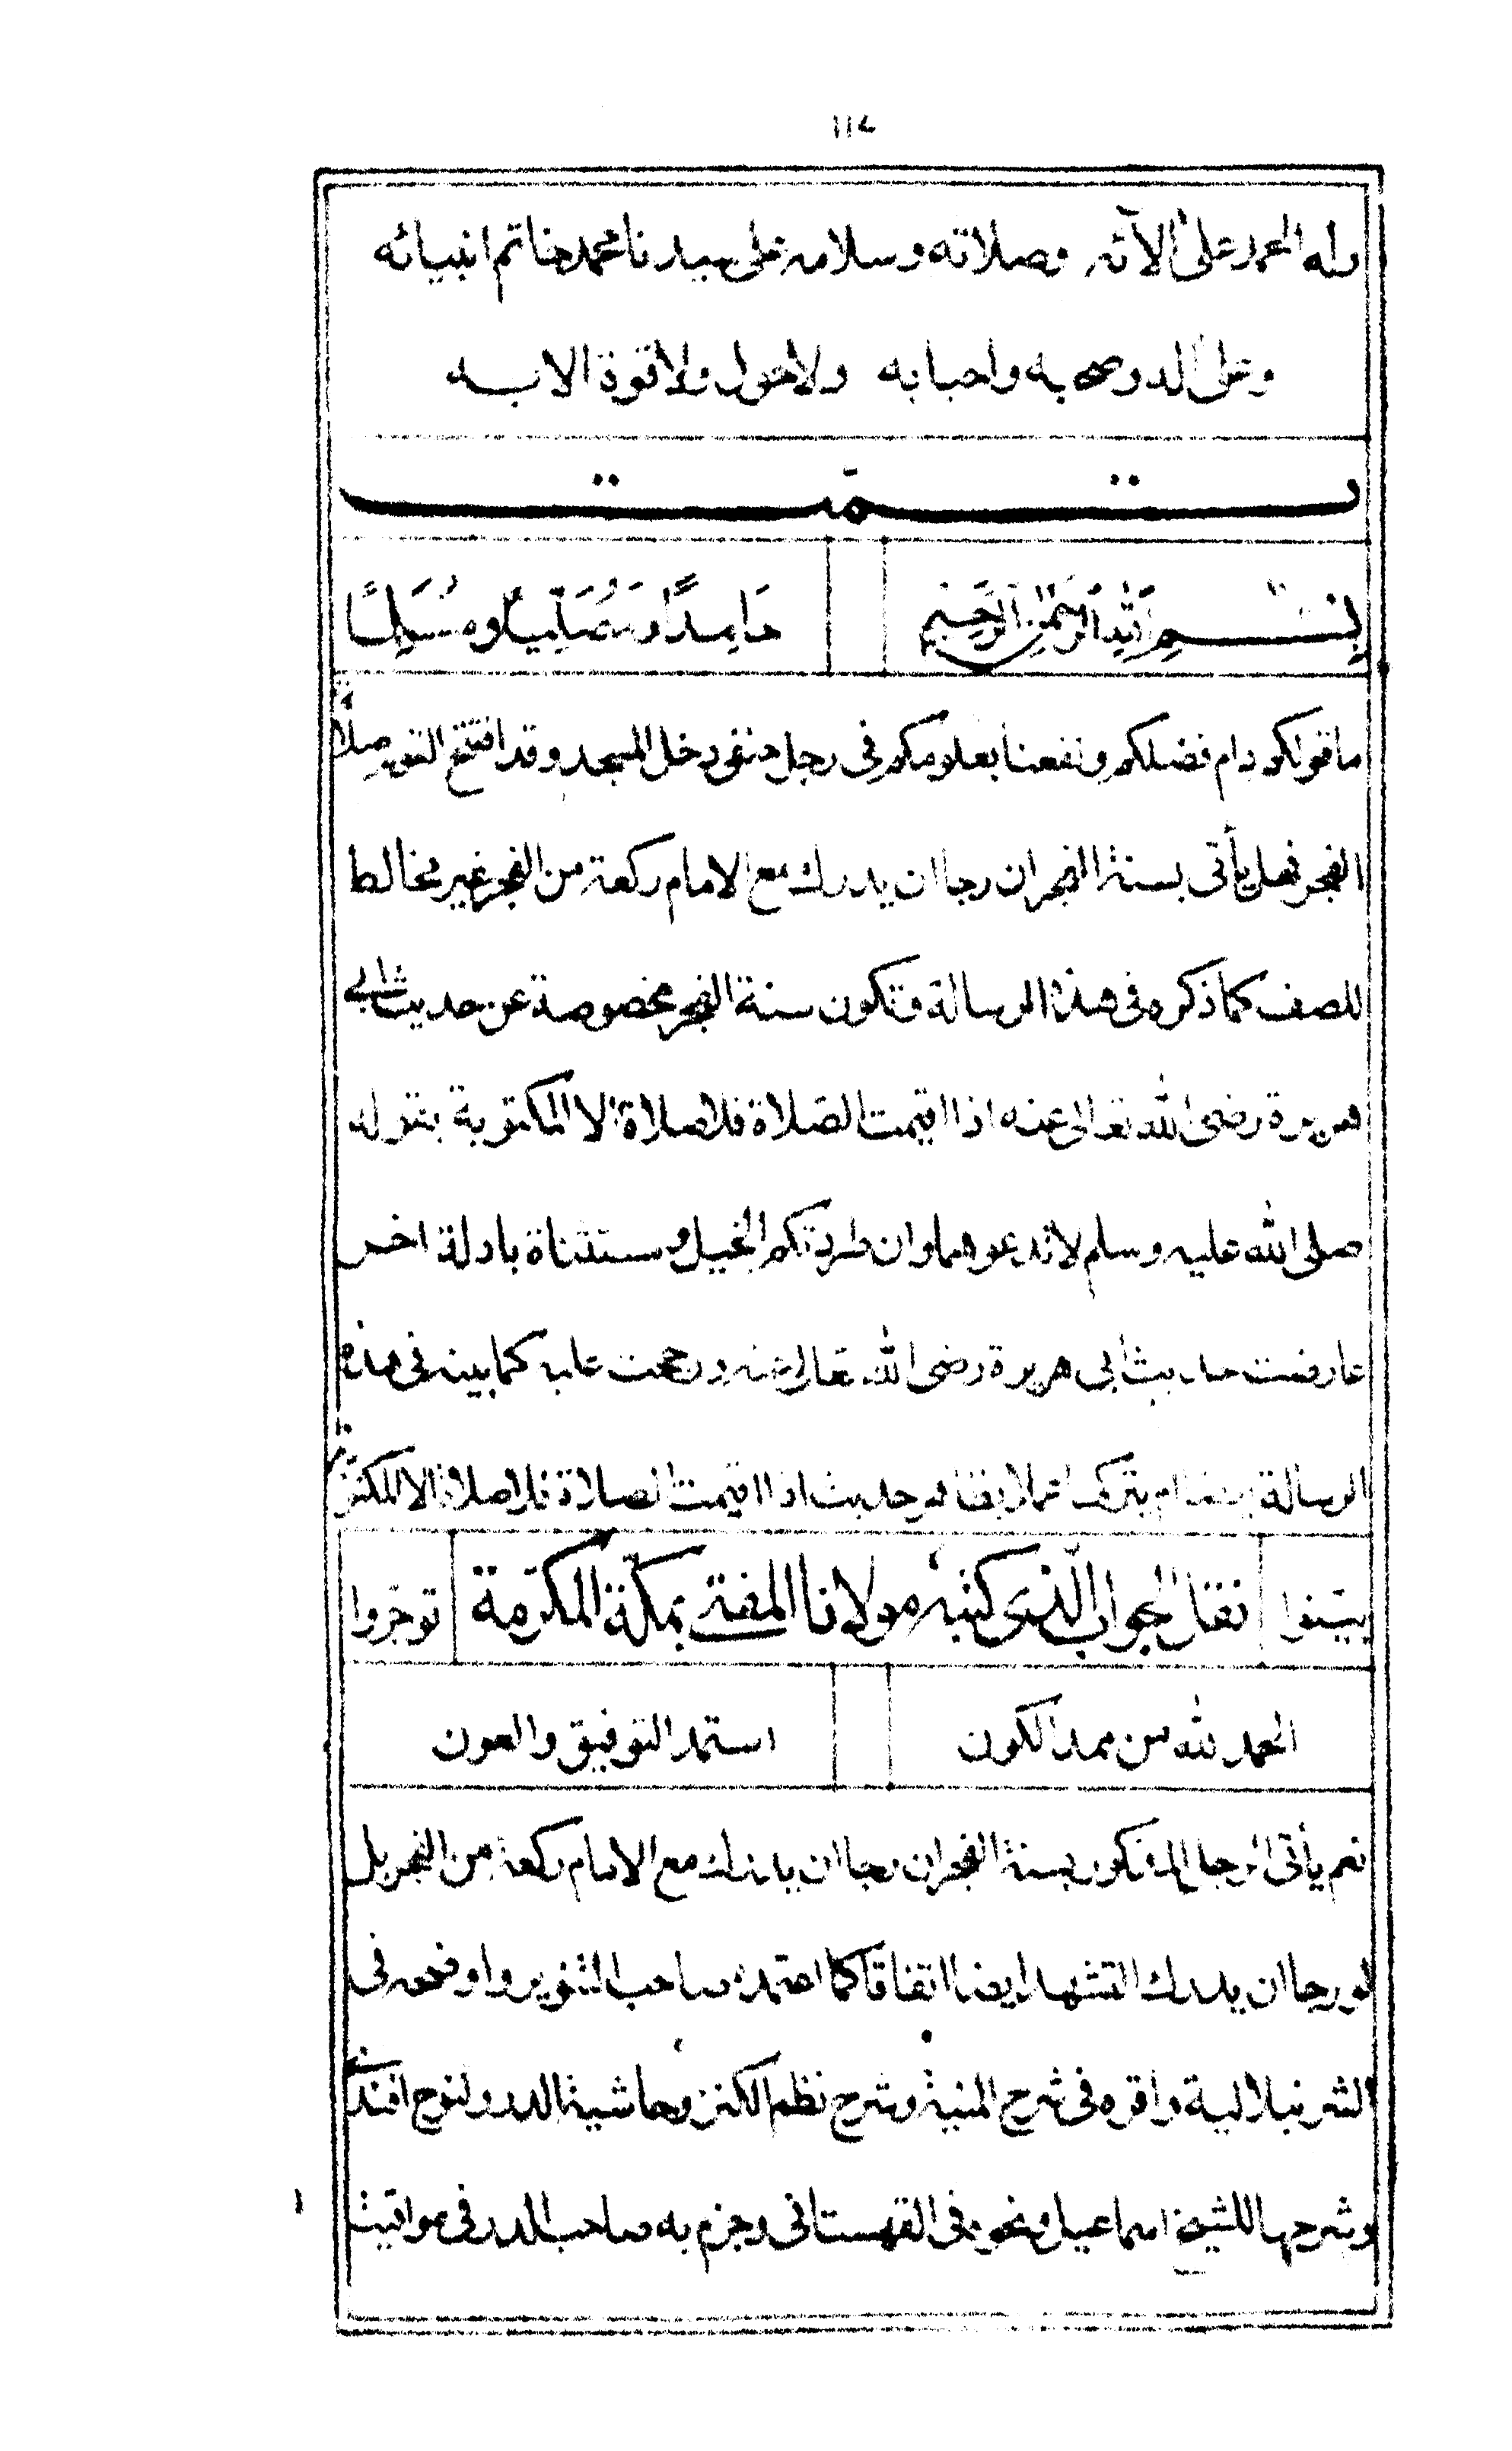 ١١٤
وله الحمد على آلائه وصلاته وسلامه على سيدنا محمد خاتم انبيائه
وعلى اله وصحبه واحبابه ولا حول ولا قوة الا به
تمّت
بِسْمِ اللهِ الرَّحْمٰنِ الرَّحِيْمِ حَامِدًا وَمُصَلِّيًا وَمُسَلِّمًا
ما قولكم دام فضلكم ونفعنا بعلومكم في رجل حنفي دخل المسجد وقد افتتح القوم صلاة
الفجر فهل يأتي بسنة الفجر ان رجا ان يدرك مع الامام ركعة من الفجر غير مخالط
للصف كما ذكره في هذا الرسالة وتكون سنة الفجر مخصوصة عن حديث ابي
هريرة رضى الله تعالى عنه اذا اقيمت الصلاة فلا صلاة الا المكتوبة بقوله
صلى الله عليه وسلم لا تدعوهما وان طردتكم الخيل ومستثناة بادلة اخر
عارضت حديث ابي هريرة رضى الله تعالى عنه ورجحت عليه كما بينه في هذه
الرسالة ام يترك عملا حديث اذا اقيمت الصلاة فلا صلاة الا المكتوبة
بيّنوا نقل الجواب الّذى كتبه مولانا المفتى بمكّة المكرّمة توجّروا
الحمد لله من ممد الكون استمد التوفيق والعون
نعم يأتى الرجل المذكور بسنة الفجر ان رجا ان يدرك مع الامام ركعة من الفجر بل
لو رجا ان يدرك التشهد ايضا اتفاقا كما اعتمده صاحب التنوير واوضحه في
الشرنبلالية واقره فى شرح المنية وشرح نظم الكنز وحاشية الدرر لنوح افندى
وشرحها للشيخ اسماعيل ونحوه فى القهستانى وجزم به صاحب الدر فى مواقيت